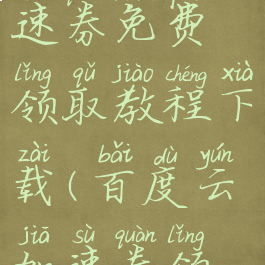 速券免费
lǐng qǔ jiào chéng xià
领取教程下
zài bǎi dù yún
载(百度云
jiā sù quàn lǐng
加速券领